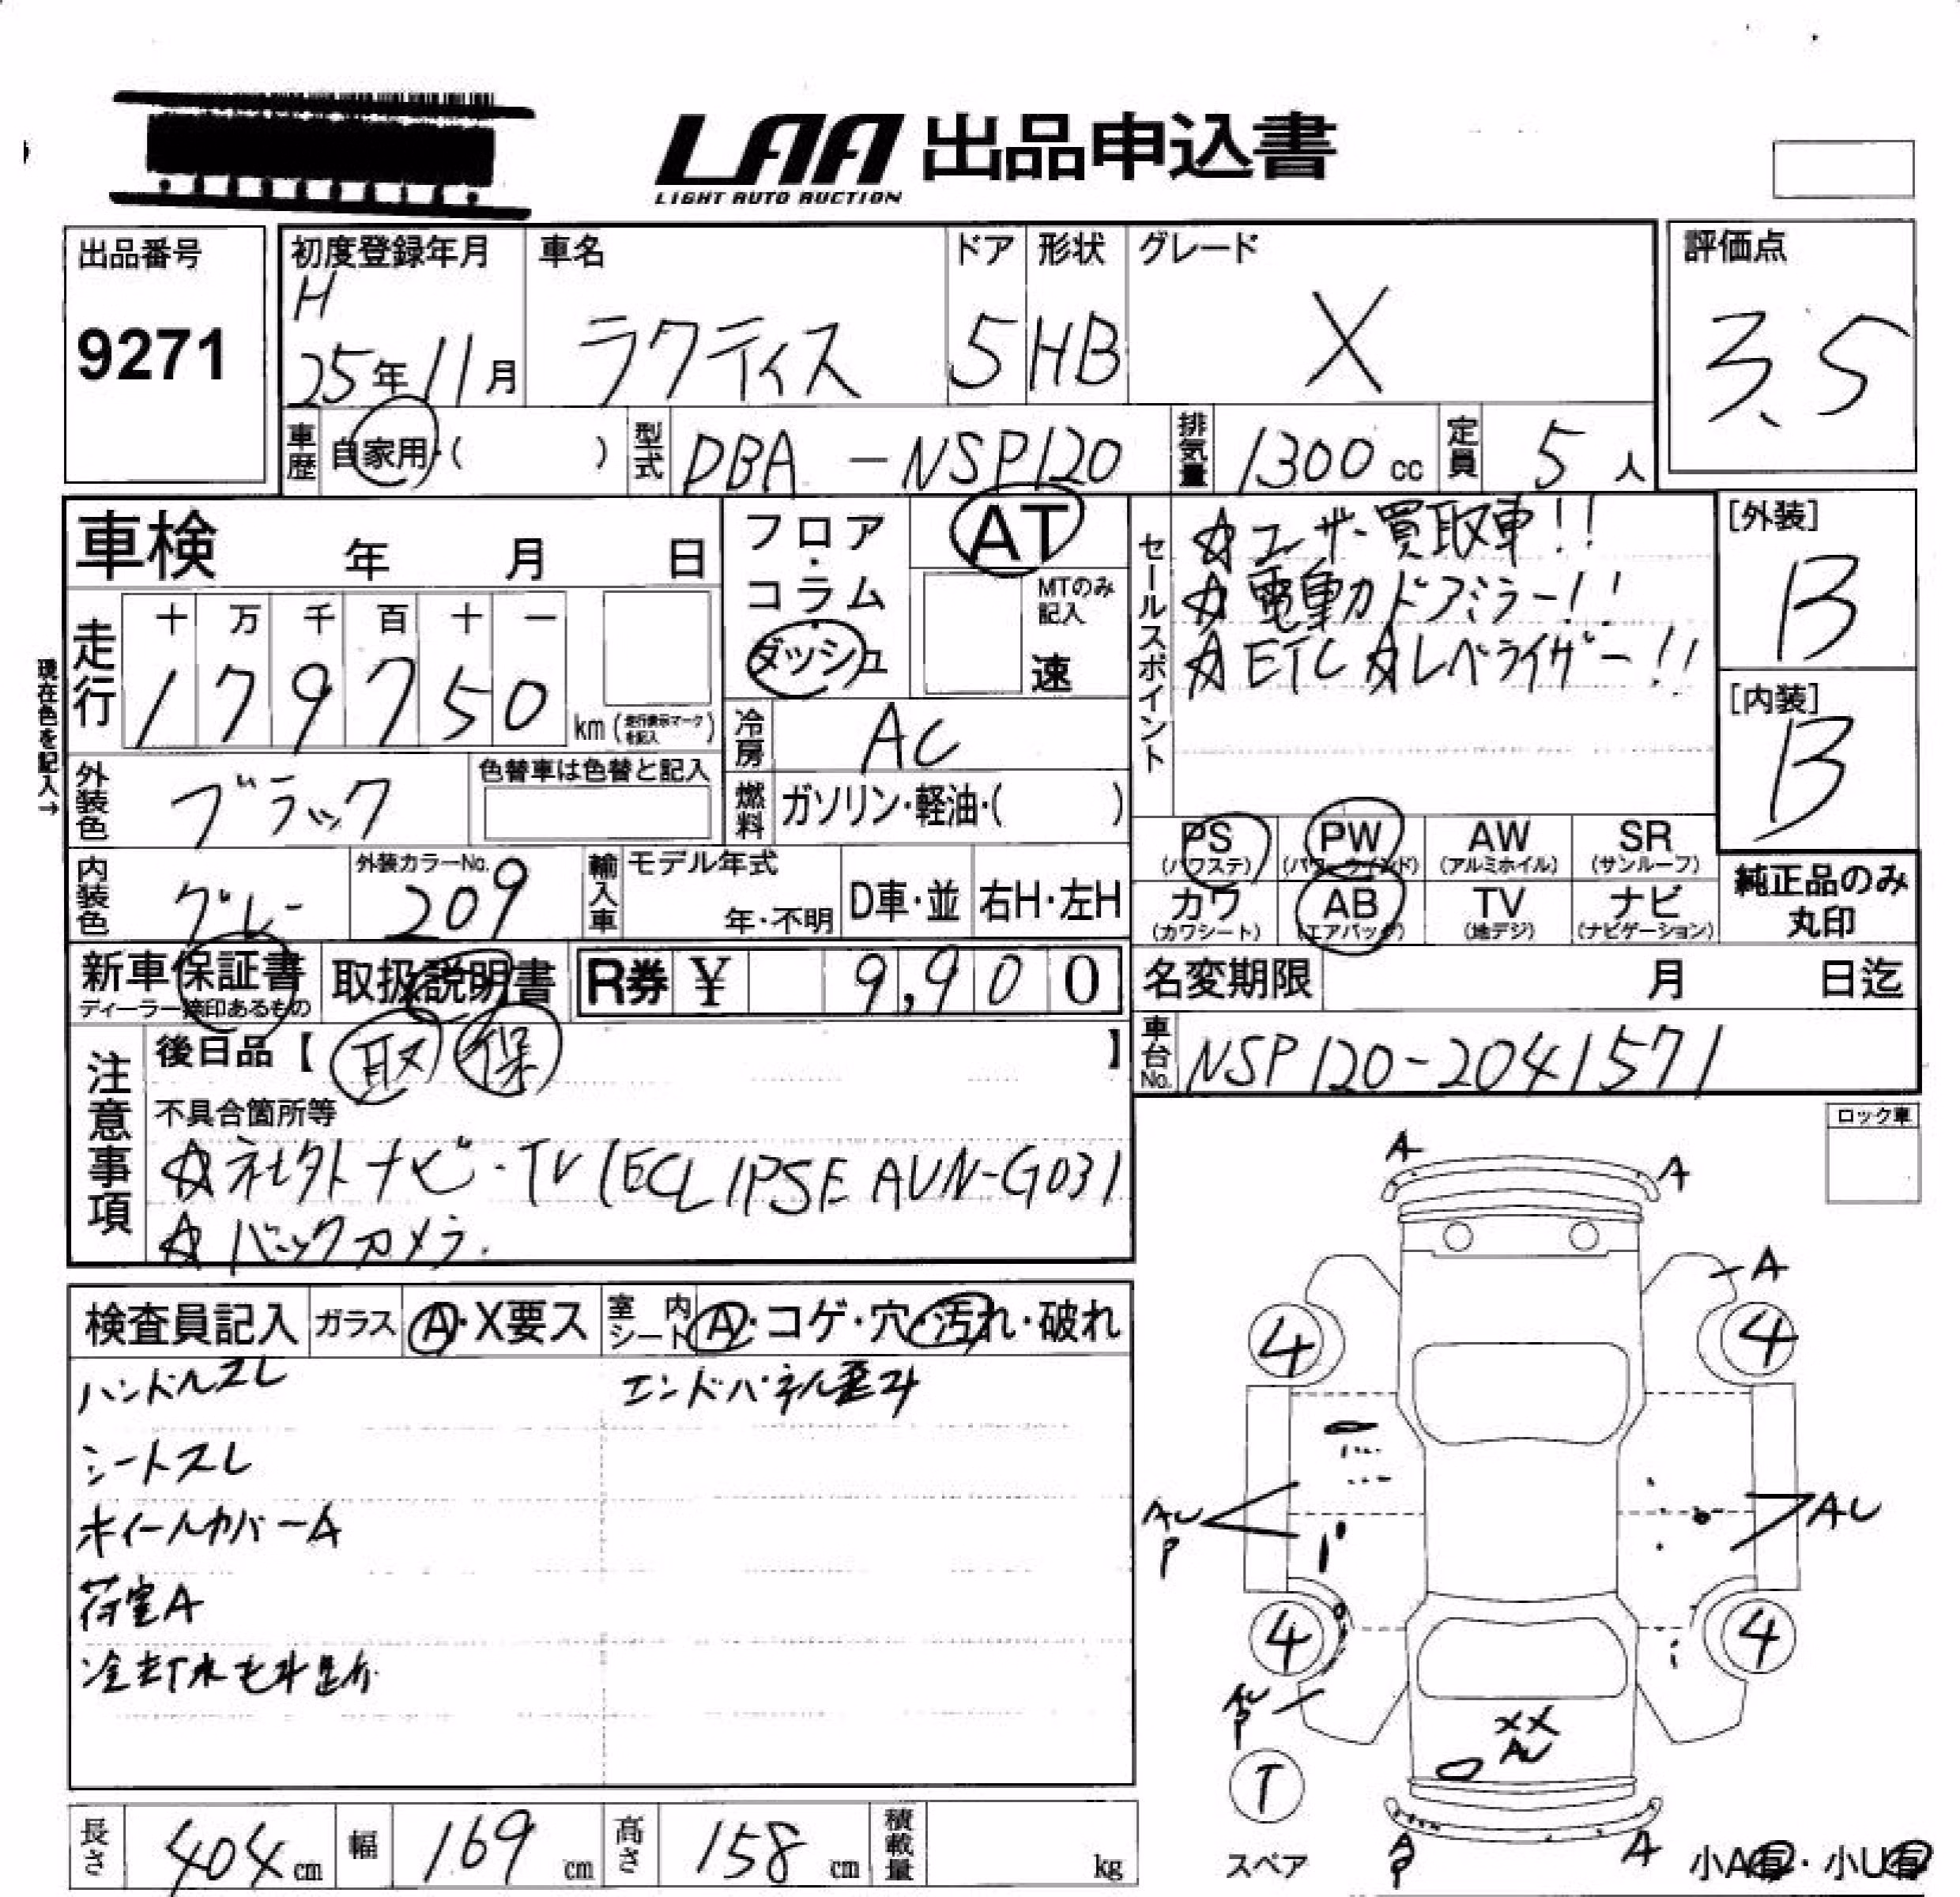 LAA 出品申込書
LIGHT AUTO AUCTION
出品番号
9271
初度登録年月
H
25年11月
車名
ラクティス
ドア
5
形状
HB
グレード
X
評価点
3.5
車歴
自家用・( )
型式
DBA-NSP120
排気量
1300cc
定員
5人
車検 年 月 日
フロア・コラム・ダッシュ
AT
MTのみ記入
速
セールスポイント
☆ユーザー買取車!!
☆電動ドアミラー!!
☆ETC ☆レベライザー!!
[外装]
B
[内装]
B
現在色を記入→
走行
十 万 千 百 十 一
179750
km(走行表示マークを記入)
冷房
AC
外装色
ブラック
色替車は色替と記入
燃料
ガソリン・軽油・( )
PS (パワステ)
PW (パワーウインド)
AW (アルミホイル)
SR (サンルーフ)
内装色
グレー
外装カラーNo.
209
輸入車
モデル年式
年・不明
D車・並
右H・左H
カワ (カワシート)
AB (エアバック)
TV (地デジ)
ナビ (ナビゲーション)
純正品のみ丸印
新車保証書
ディーラー捺印あるもの
取扱説明書
R券 ¥ 9,900
名変期限 月 日迄
車台No.
NSP120-2041571
注意事項
後日品【取 保】
不具合箇所等
☆社外ナビ・TV (ECLIPSE AUN-G031
☆バックカメラ.
ロック車
検査員記入
ガラス
A・X要ス
室内シート
A・コゲ・穴・汚れ・破れ
ハンドルスレ
エンドパネル歪み
シートスレ
ホイールカバーA
荷室A
A
A
A
4
4
AU
P
AU
4
4
AU
P
XX
AU
T
スペア
A
P
A
小A有・小U有
長さ
404cm
幅
169cm
高さ
158cm
積載量
kg